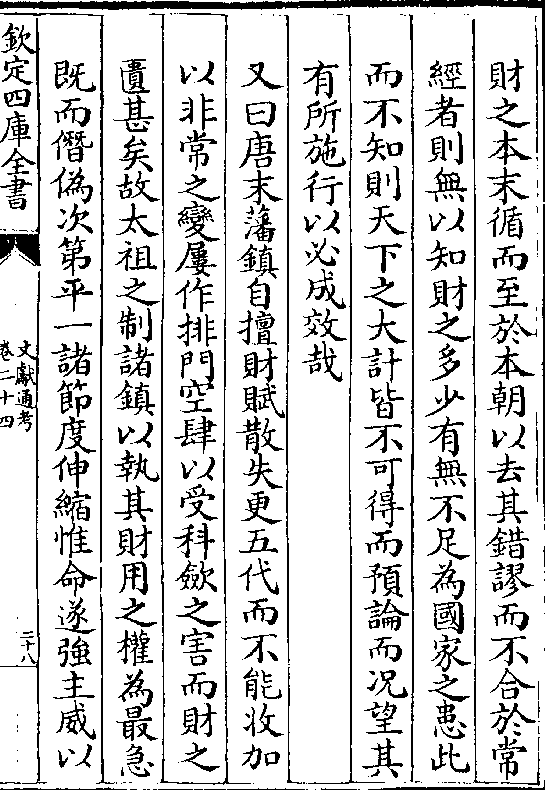 財之本末循而至於本朝以去其錯謬而不合於常
經者則無以知財之多少有無不足為國家之患此
而不知則天下之大計皆不可得而預論而况望其
有所施行以必成效哉
又曰唐末藩鎮自擅財賦散失更五代而不能收加
以非常之變屢作排門空肆以受科斂之害而財之
匱甚矣故太祖之制諸鎮以執其財用之權為最急
既而僭偽次第平一諸節度伸縮惟命遂強主威以
欽定四庫全書
文獻通考
卷二十四
二十八